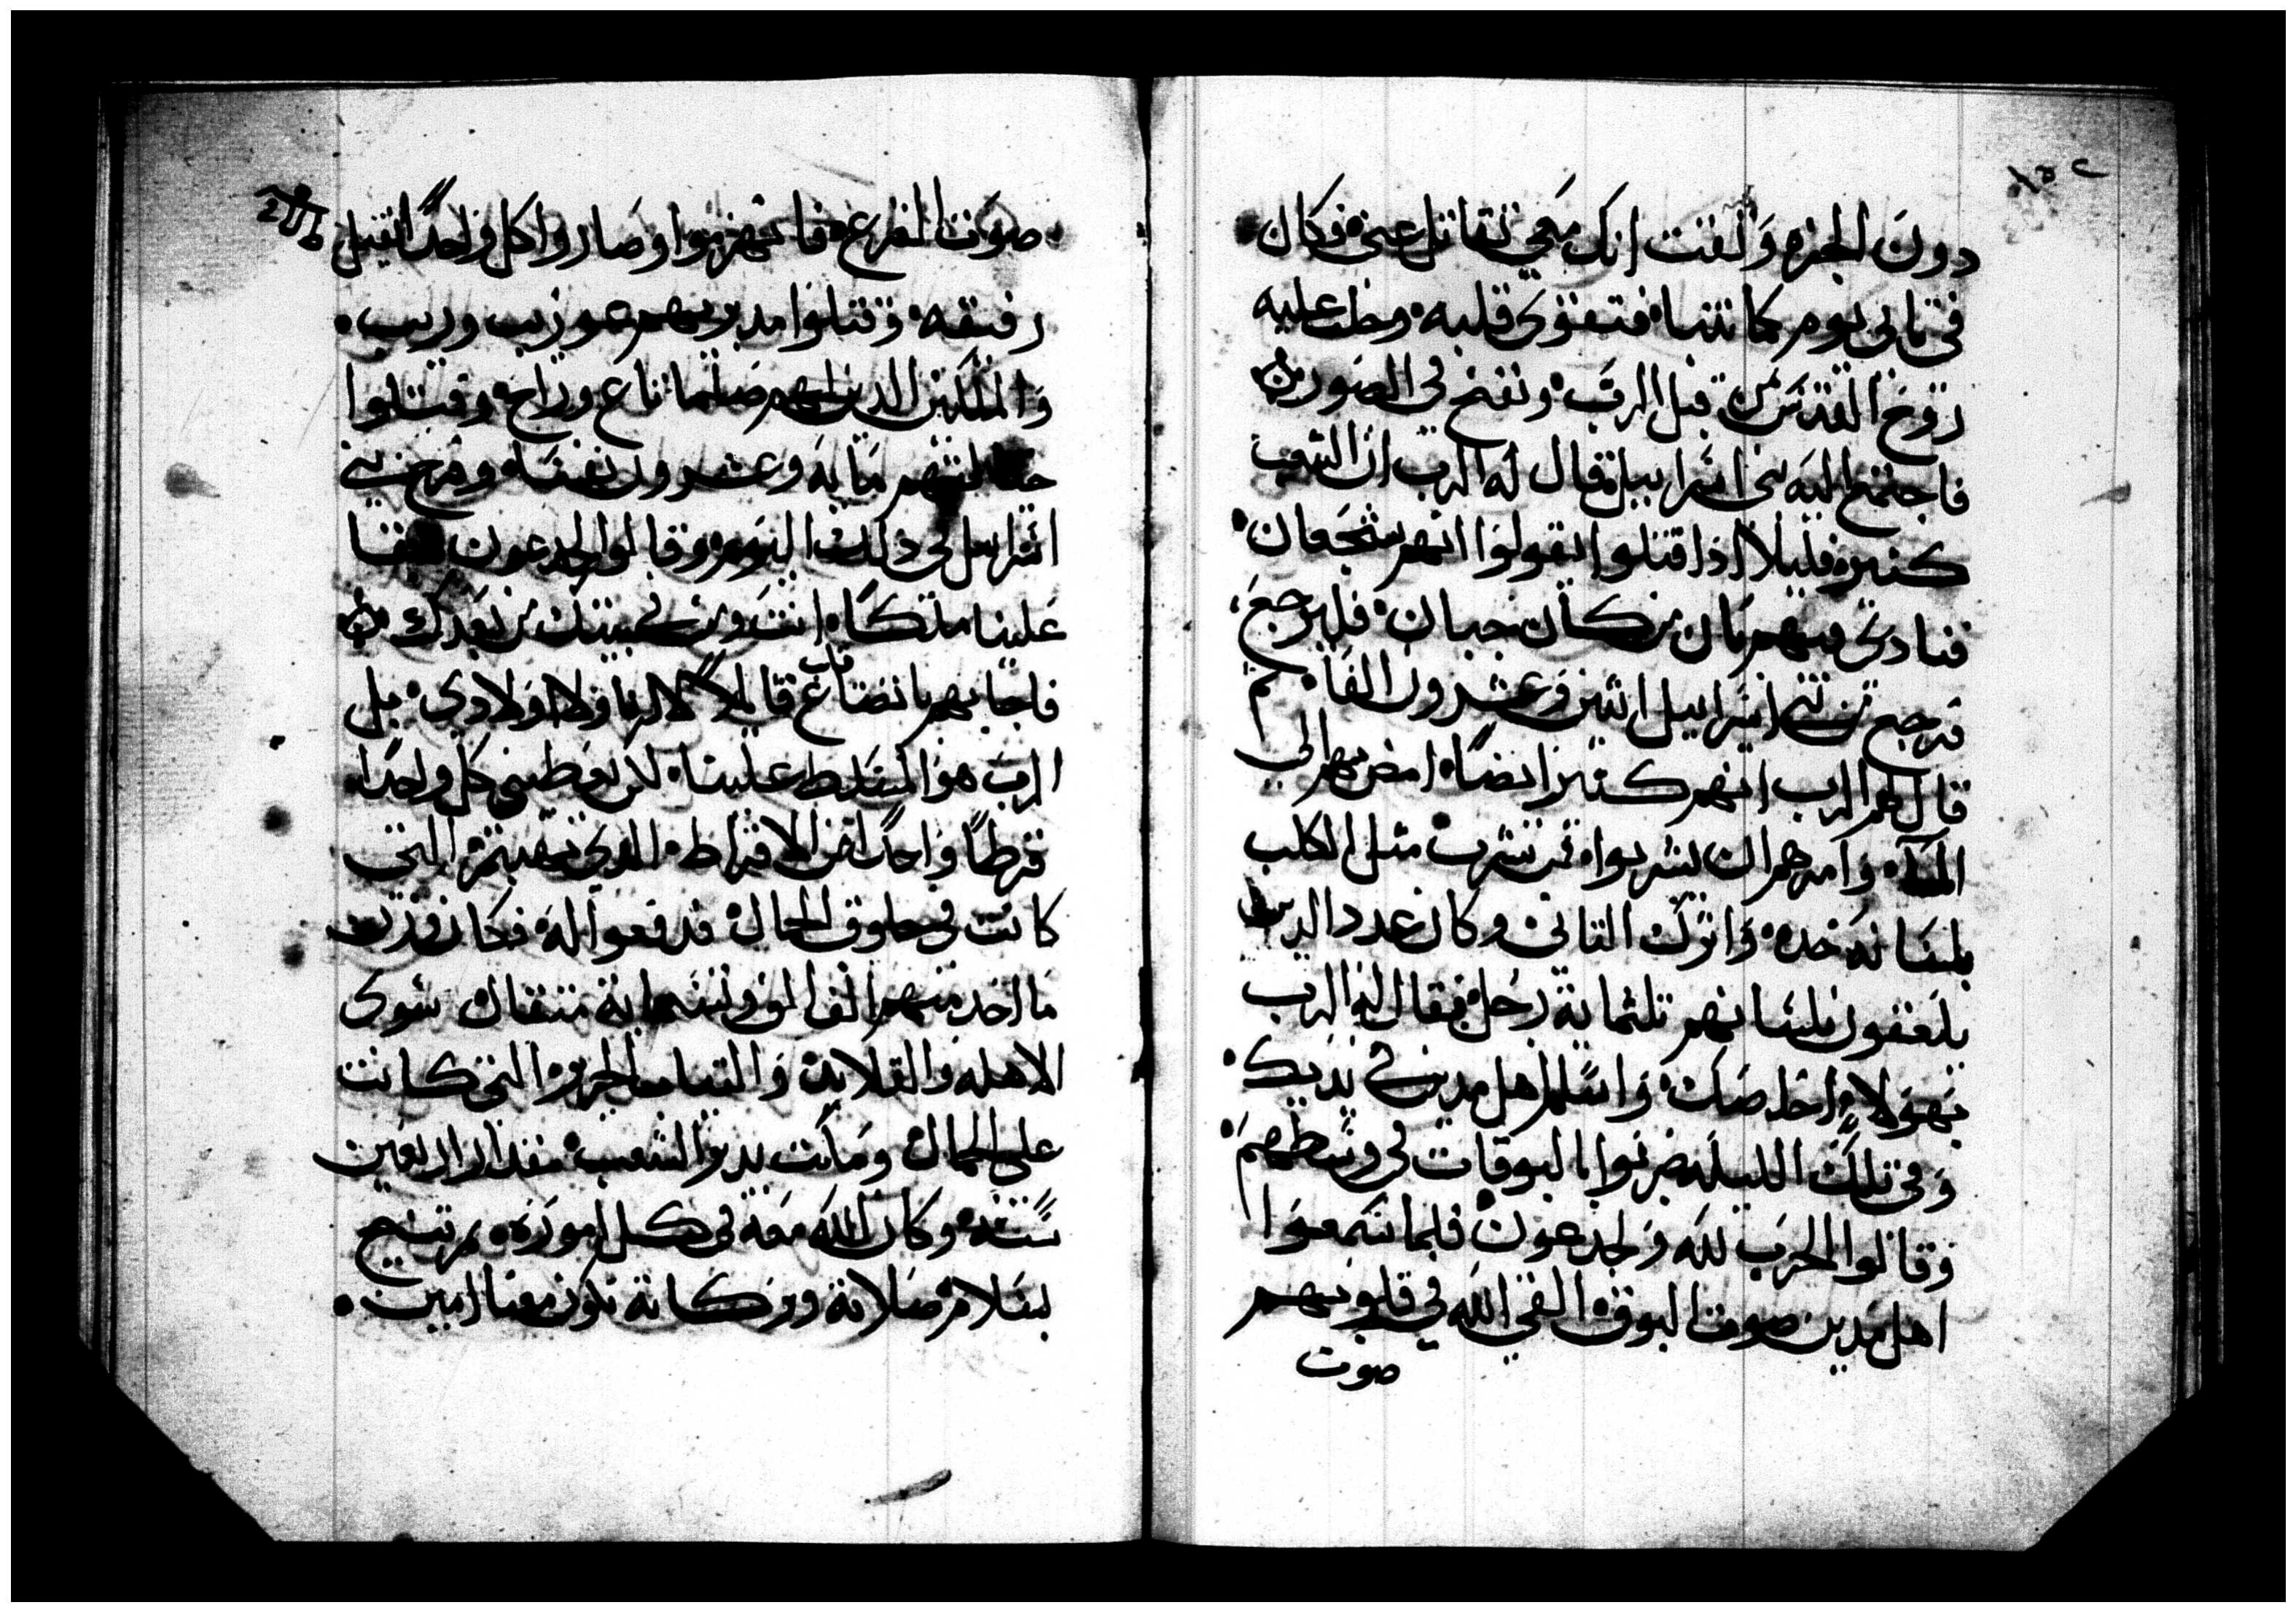 ١٥٢
دون الجزه وَثقت انك معي تقاتل عني فكان
في تاني يوم كما تنبا فتقوى قلبه وحلت عليه
روح القدس من قبل الرب ونفخ في الصور
فاجتمع اليه بني اسراييل فقال له الرب ان الشعب
كتيره فليلا اذا قتلوا يقولوا انهم شجعان
فنادى فيهم بان من كان جبان فليرجع
فرجع من بني اسراييل اتنين وعشرون الفا تم
قال لهم الرب انهم كتير ايضًا امض بهم الى
المآء وامرهم ان يشربوا فمن شرب مثل الكلب
بلسانه خده واترك التاني وكان عدد الدين
يلعقون بلسانهم تلثماية رجل فقال له الرب
بهولاء اخلصك واسلم اهل مدين في يديك
وفي تلك الليله ضربوا بالبوقات في وسطهم
وقالوا الحرب لله ولجدعون فلما سمعوا
اهل مدين صوت البوق القي الله في قلوبهم
صوت
صوت الفزع فانهزموا وصاروا كل واحدًا يقتل
رفيقه وقتلوا مدبريهم عوزيب وريب
والملكين الدين لهم صلما ناع وزابح وقتلوا
منهم مايه وعشرون نفسا وفرح بني
اسراييل في ذلك اليوم وقالوا لجدعون
علينا ملكًا انت ومن في بيتك من بعدك
فاجابهم باتضاع قايلا لا انا ولا اولادي بل
الرب هو المتسلط علينا لكن يعطيني كل واحدًا
قرطًا واحدًا من الاقراط الدي التي
كانت في حلوق الجمال فدفعوا له فكان وزن
ما اخد منهم الف الف وتسعماية متقال سوى
الاهله والقلايد والتياب الحرير التي كانت
على الجمال ومكت يدبر الشعب مقدار اربعين
سنه وكان الله معه في كل اموره تم تنيح
بسلام صلاته وبركاته تكون معنا امين